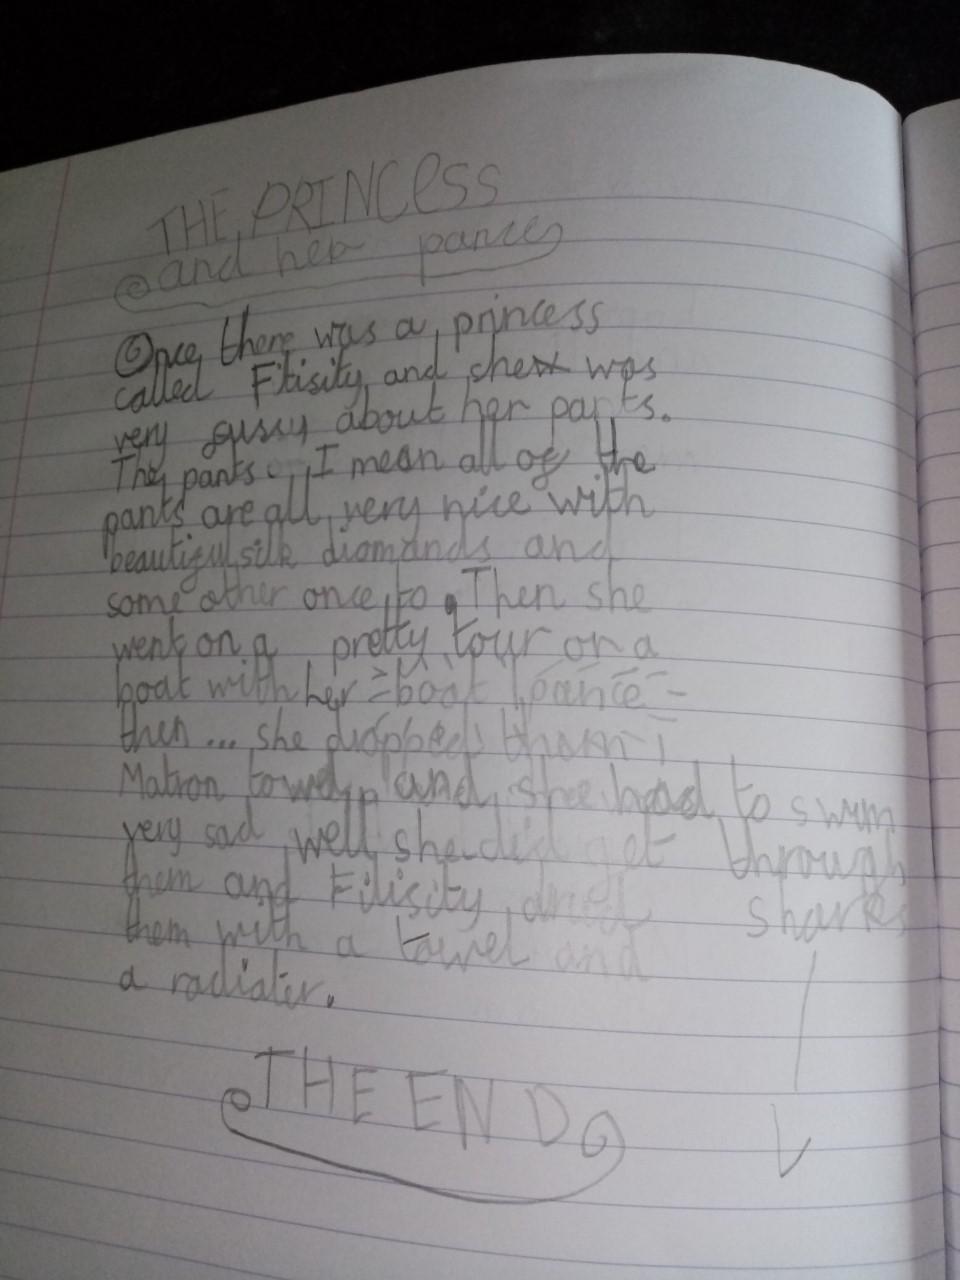 THE PRINCESS
and her pance
Once there was a princess
called Filisity and she was
very fussy about her pants.
The pants... I mean all of the
pants are all very nice with
beautiful silk diamands and
some other once to. Then she
went on a pretty tour on a
boat with her boat pance
then... she dropped them!
Matron and she had to swim
very sad well she did get through
them and Filisity dried sharks
them with a towel and
a radiater.
THE END